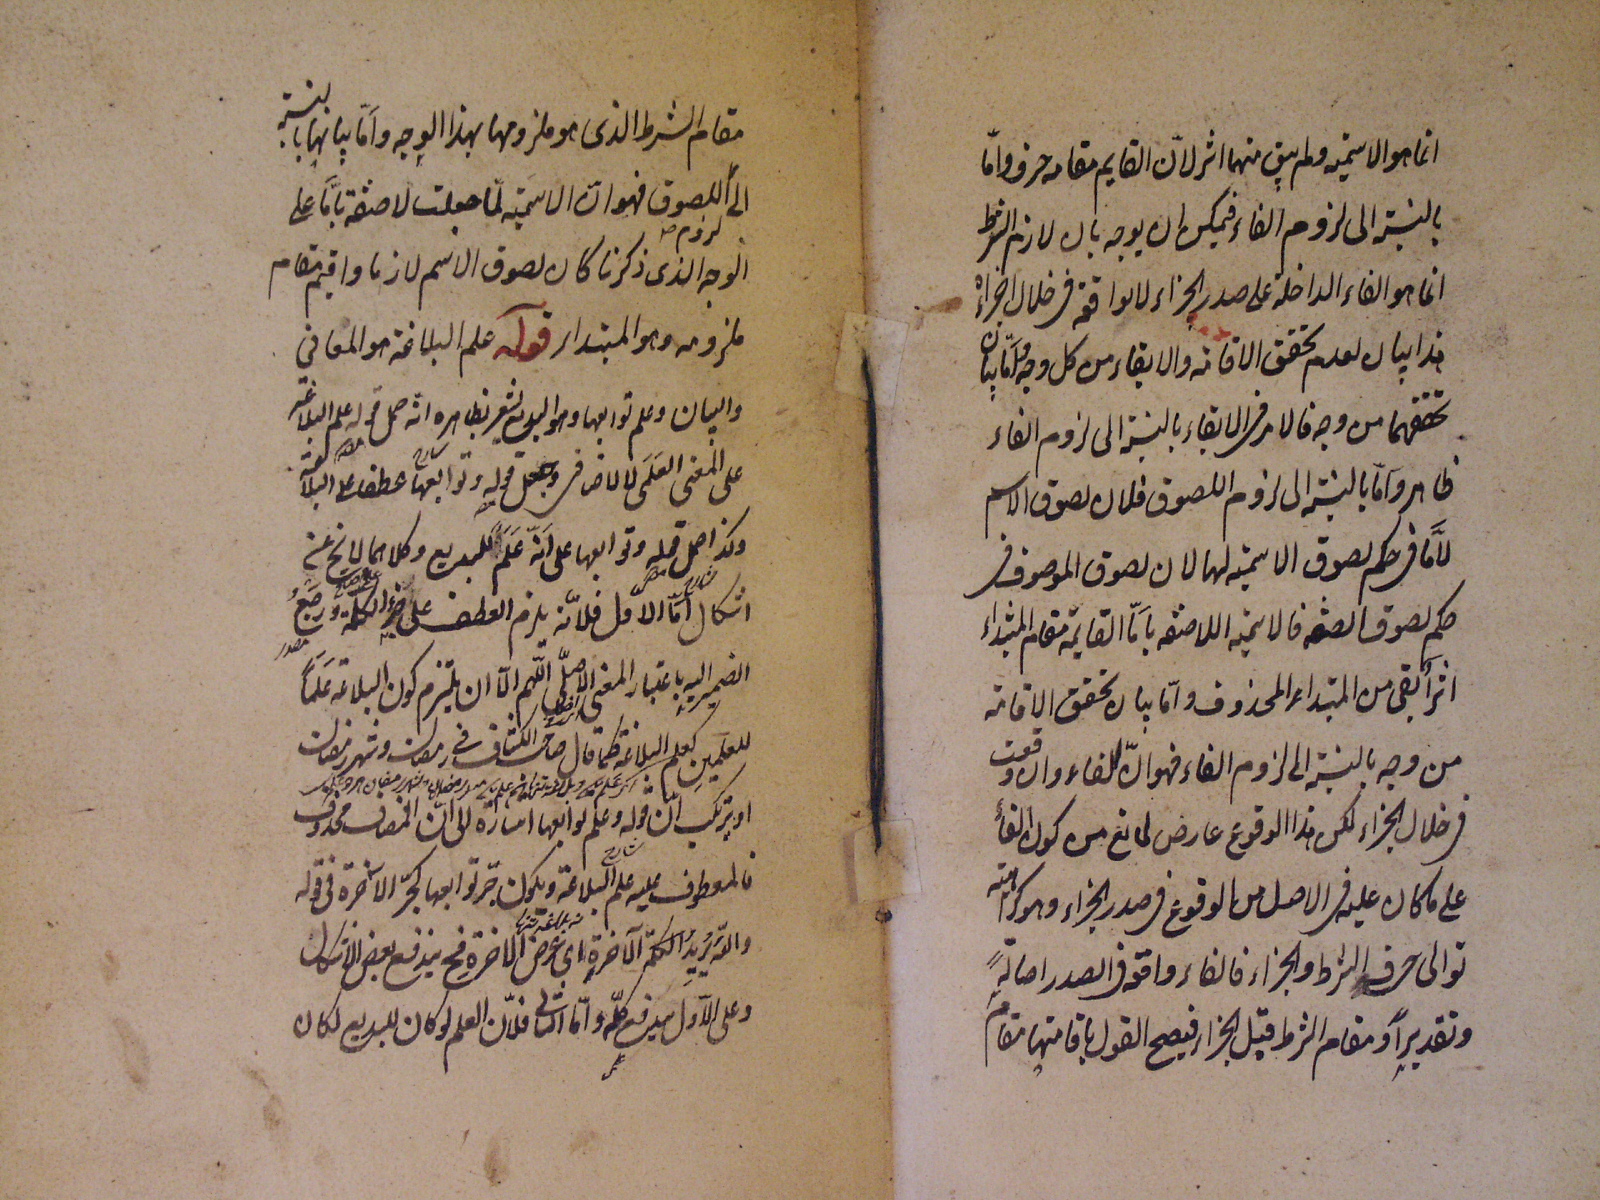 انما هو الاسمية ولم يبق منهما اثر لان القايم مقامه حرف واما
بالنسبة الى لزوم الفاء فيمكن ان يوجه بان لازم الشرط
انما هو الفاء الداخلة على صدر الجزاء لا الواقعة فى خلال الجزاء
هذا بيان لعدم تحقق الاقامة والابقاء من كل وجه واما بيان
تحققهما من وجه فالامر فى الابقاء بالنسبة الى لزوم الفاء
ظاهر واما بالنسبة الى لزوم اللصوق فلان لصوق الاسم
لاما فى حكم لصوق الاسمية لها لان لصوق الموصوف فى
حكم لصوق الصفة فالاسمية اللاصقة باما القايمة مقام المبتداء
اثر ابقى من المبتداء المحذوف واما بيان تحقق الاقامة
من وجه بالنسبة الى لزوم الفاء فهو ان الفاء وان وقعت
فى خلال الجزاء لكن هذا الوقوع عارض لمانع من كون الفاء
على ما كان عليه فى الاصل من الوقوع فى صدر الجزاء وهو كراهته
توالى حرف الشرط والجزاء فالفاء واقعة فى الصدر اصالة
وتقديرا ومقام الشرط قبل الجزاء فيصح القول باقامتها مقام
مقام الشرط الذى هو ملزومها بهذا الوجه واما بيانها بالنسبة
الى اللصوق فهو ان الاسمية لما جعلت لاصقة باما على
الوجه الذى ذكرنا كان لصوق الاسم لازما واقيم مقام
ملزومه وهو المبتدا قوله علم البلاغة هو المعانى
والبيان وعلم توابعها وهو البديع يشعر بظاهره انه حمل قوله علم البلاغة
على المعنى العلمى لا الاضافى وجعل قوله وتوابعها عطفا على البلاغة
وكذا حمل قوله وتوابعها على انه علم للبديع وكلاهما لا يخ عن
اشكال اما الاول فلانه يلزم العطف على جزء الكلمة ورجع
الضمير اليه باعتبار المعنى الاصلى اللهم الا ان يلتزم كون البلاغة علما
للعلمين كعلم البلاغة كما قال صاحب الكشاف فى رمضان وشهر رمضان
او يرتكب ان قوله وعلم توابعها اشارة الى ان المضاف محذوف
فالمعطوف عليه علم البلاغة ويكون جر توابعها كجر الاخرة فى قوله
والله يريد الاخرة اى عرض الاخرة فح يندفع بعض الاشكال
وعلى الاول يندفع كله واما الثانى فلان العلم لو كان للبديع لكان